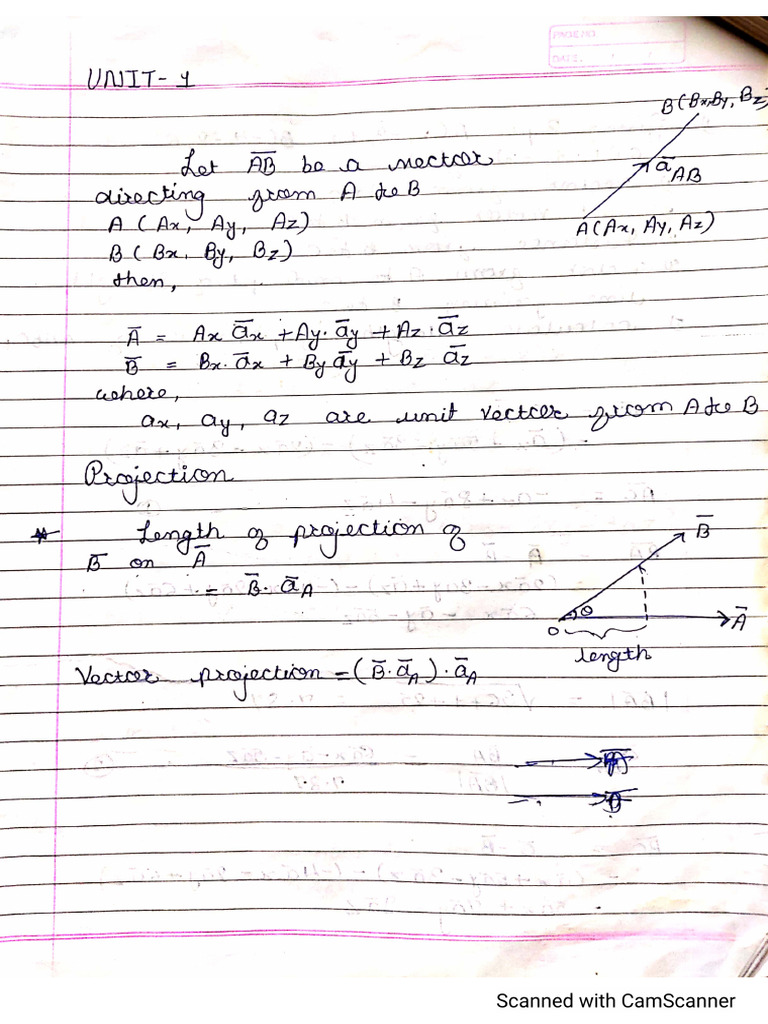 PAGE NO.
DATE:
UNIT-1
B(Bx, By, Bz)
ā AB
A(Ax, Ay, Az)
Let A̅B̅ be a vector
directing from A to B
A (Ax, Ay, Az)
B (Bx, By, Bz)
then,
Ā = Ax āx + Ay. āy + Az . āz
B̅ = Bx. āx + By āy + Bz āz
where,
ax, ay, az are unit vector from A to B
Projection
* Length of projection of
B̅ on Ā
= B̅. āA
B̅
θ
O
Ā
length
Vector projection = (B̅. āA) . āA
Scanned with CamScanner